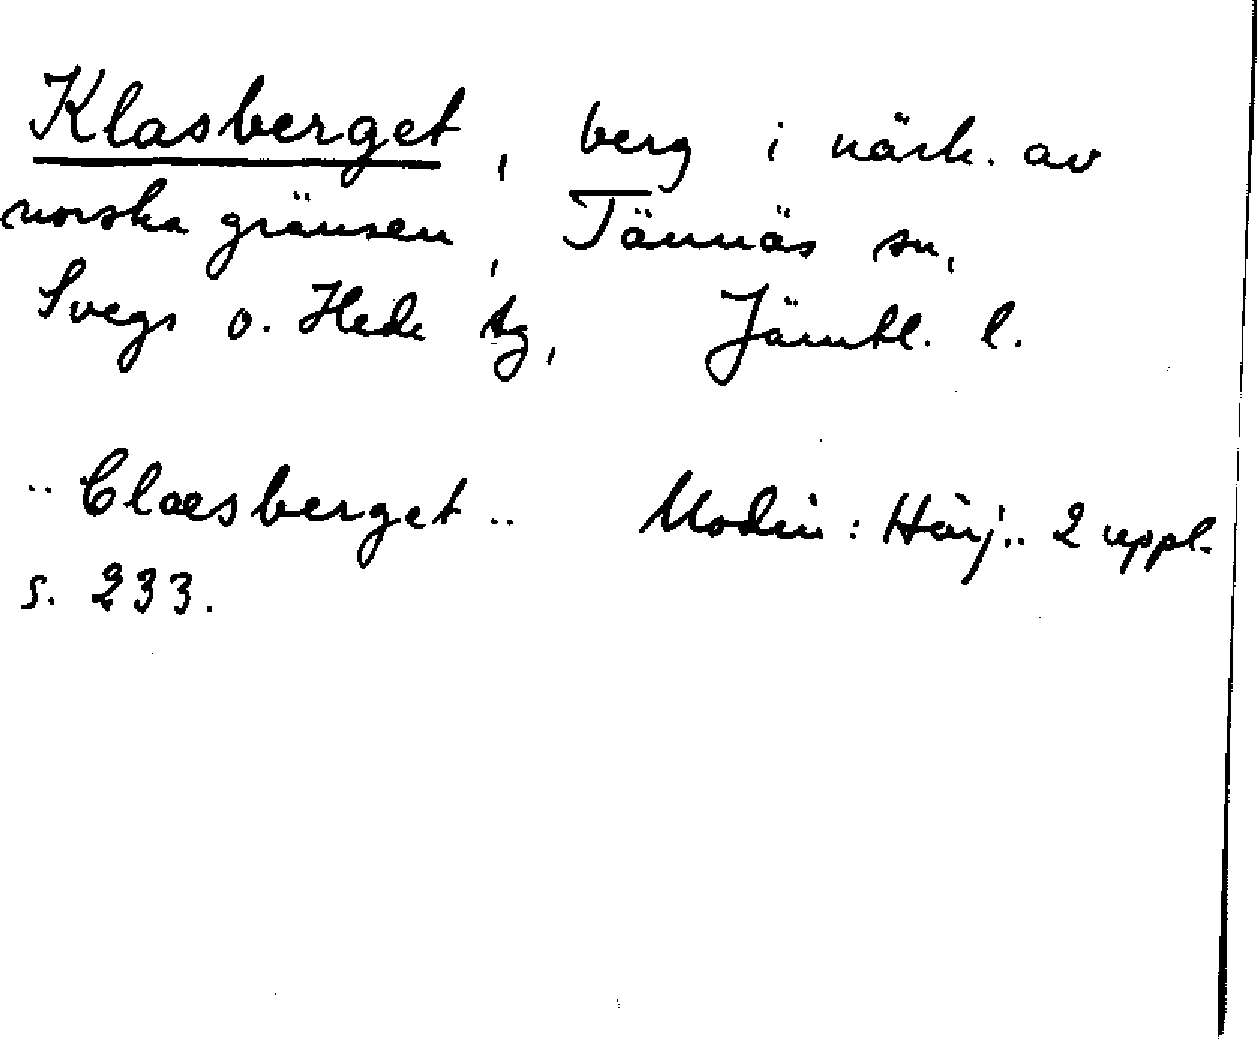 Klasberget, berg i närh. av
norska gränsen, Tännäs sn,
Svegs o. Hede tg, Jämtl. l.
"Claesberget" Modin: Härj.. 2 uppl.
s. 233.